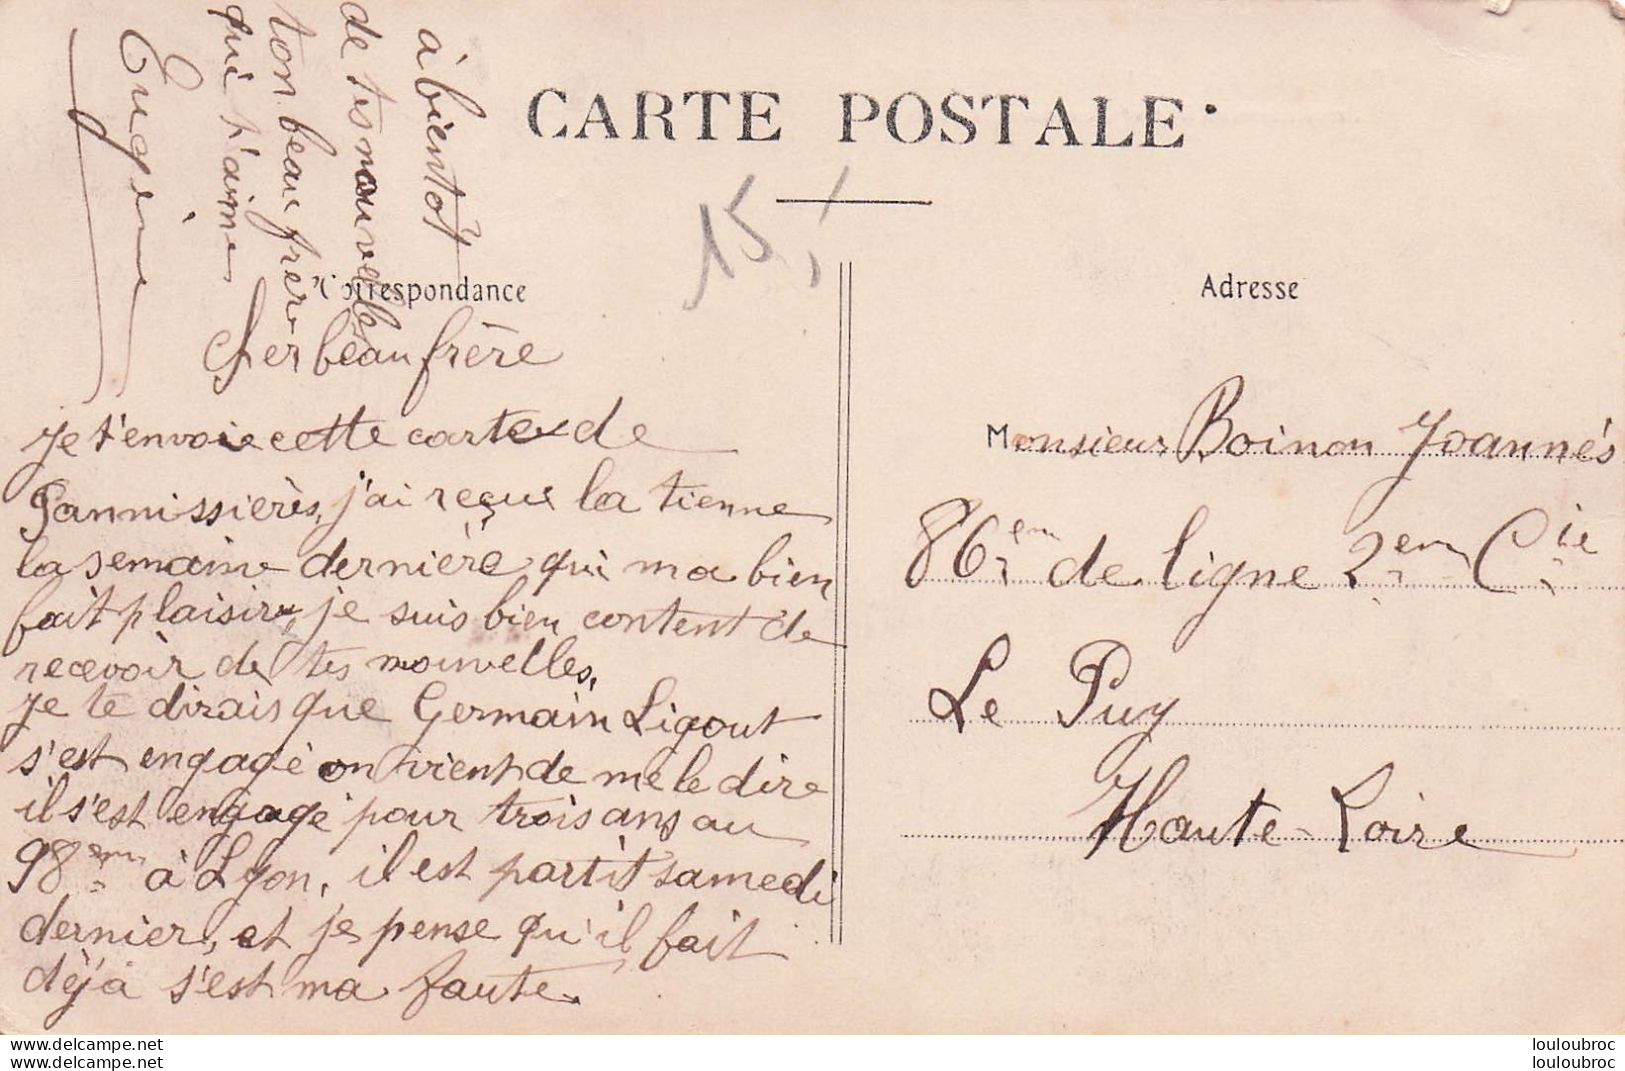 CARTE POSTALE
15,
Correspondance
Cher beau frère
je t'envoie cette carte de
Pannissières, j'ai reçue la tienne
la semaine dernière qui ma bien
fait plaisir, je suis bien content de
recevoir de tes nouvelles,
je te dirais que Germain Ligout
s'est engagé on vient de me le dire
il s'est engagé pour trois ans au
98em à Lyon, il est partit samedi
dernier, et je pense qu'il fait
dèjà s'est ma faute.
à bientôt
de tes nouvelles
ton beau frère
qui t'aime
Eugène
Adresse
Monsieur Boinon Joannés
86em de ligne 2em Cie
Le Puy
Haute-Loire
louloubroc
louloubroc
louloubroc
louloubroc